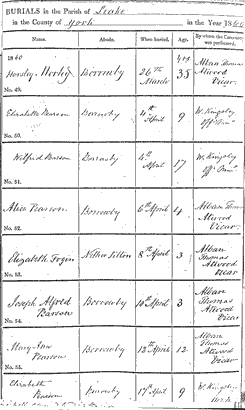 BURIALS in the Parish of Leake
in the County of York in the Year 1860
Name. Abode. When buried. Age. By whom the Ceremony was performed.
1860
Horsley Morley Borrowby 26th March 35 Alban Thomas Attwood Vicar.
No. 49.
Elizabeth Pearson Barnsby 4th April 9 W. Kingsley
No. 50.
Wilfred Pearson Barnsby 4th April 17 W. Kingsley
No. 51.
Alice Pearson Borrowby 6th April 4 Alban Thomas Attwood Vicar
No. 52.
Elizabeth Nether Silton 8th April 3 Alban Thomas Attwood Vicar
No. 53.
Joseph Alfred Pearson Borrowby 10th April 3 Alban Thomas Attwood Vicar
No. 54.
Mary Ann Pearson Borrowby 12th April 12 Alban Thomas Attwood Vicar
No. 55.
Elizabeth Pearson 17th April 9 W. Kingsley